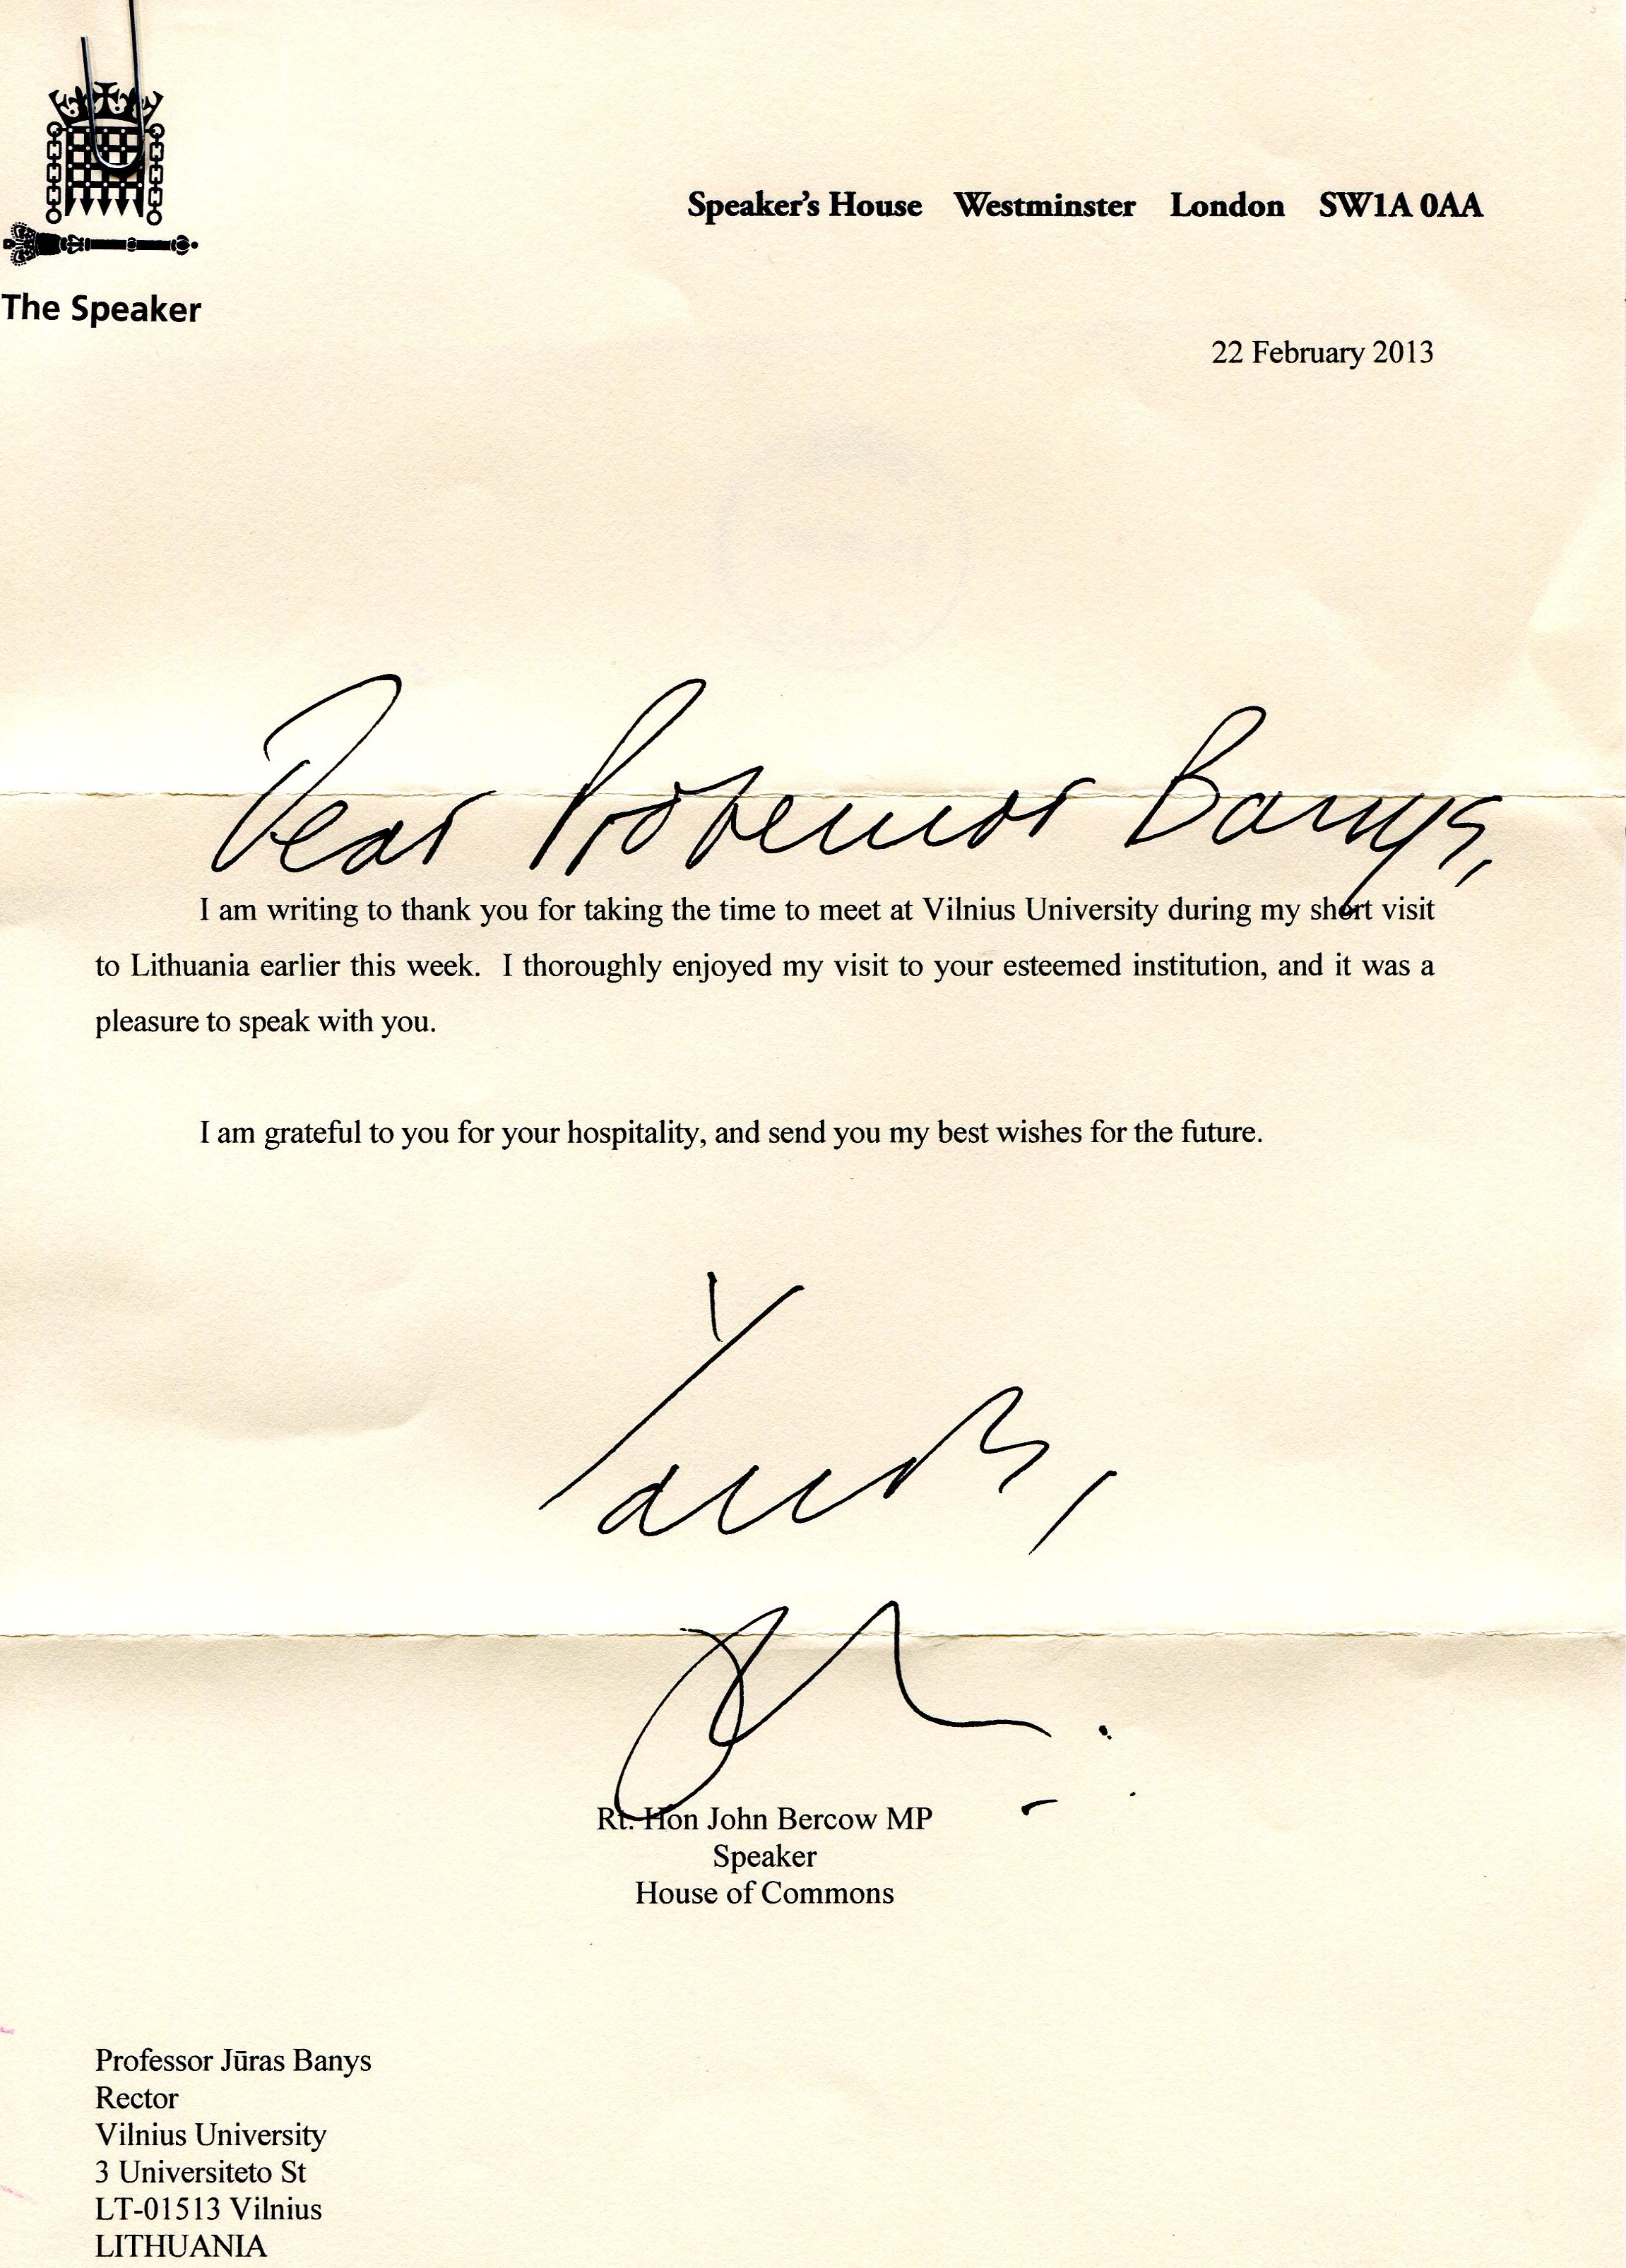 The Speaker
Speaker's House Westminster London SW1A 0AA
22 February 2013
Dear Professor Banys,
I am writing to thank you for taking the time to meet at Vilnius University during my short visit
to Lithuania earlier this week. I thoroughly enjoyed my visit to your esteemed institution, and it was a
pleasure to speak with you.
I am grateful to you for your hospitality, and send you my best wishes for the future.
Rt. Hon John Bercow MP
Speaker
House of Commons
Professor Jūras Banys
Rector
Vilnius University
3 Universiteto St
LT-01513 Vilnius
LITHUANIA